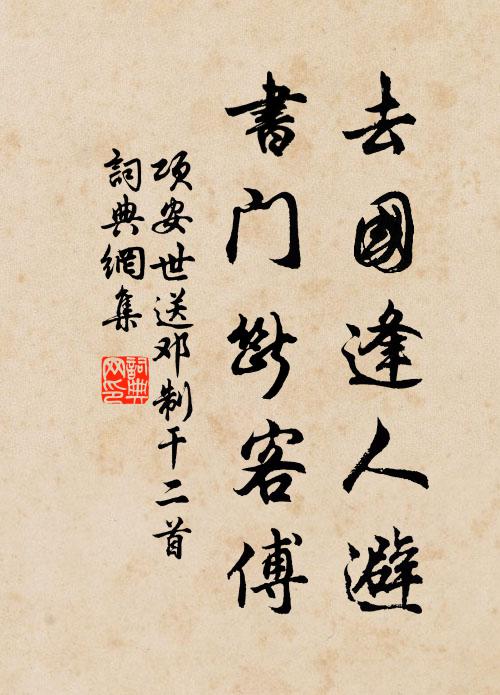 去國逢人避
書门斷客傅
项安世送邓制干二首
詞典網集
詞典網印